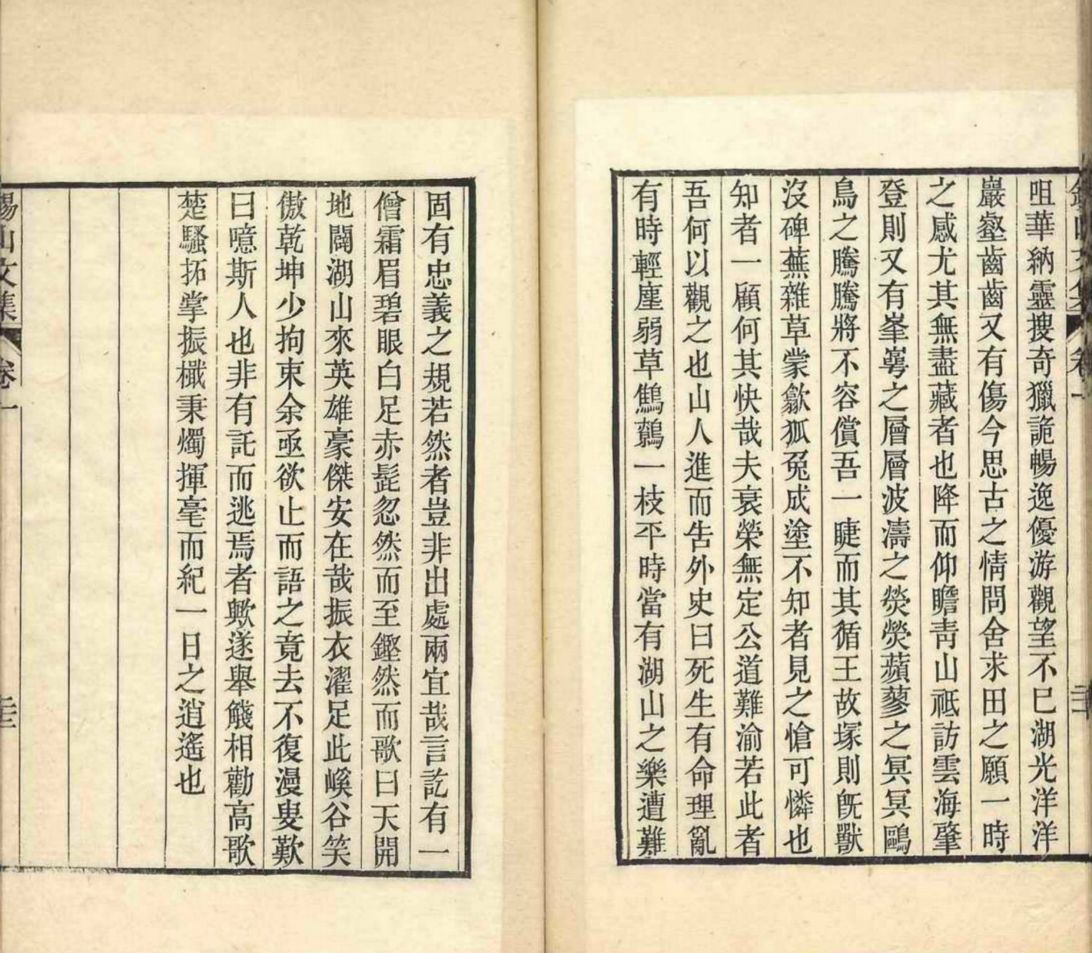 咀華納靈搜奇獵詭暢逸優游觀望不已湖光洋洋
巖壑齒齒又有傷今思古之情問舍求田之願一時
之感尤其無盡藏者也降而仰瞻靑山祗訪雲海肇
登則又有峯嶀之層層波濤之熒熒蘋蓼之冥冥鷗
鳥之騰騰將不容償吾一睫而其循王故塚則旣獸
沒碑蕪雜草蒙歙狐兔成塗不知者見之愴可憐也
知者一顧何其快哉夫衰榮無定公道難渝若此者
吾何以觀之也山人進而告外史曰死生有命理亂
有時輕塵弱草鷦鷯一枝平時當有湖山之樂遭難
固有忠義之規若然者豈非出處兩宜哉言訖有一
僧霜眉碧眼白足赤髭忽然而至鏗然而歌曰天開
地闢湖山來英雄豪傑安在哉振衣濯足此嵠谷笑
傲乾坤少拘束余亟欲止而語之竟去不復漫叟歎
曰噫斯人也非有託而逃焉者歟遂舉觴相勸高歌
楚騷拓掌振檝秉燭揮毫而紀一日之逍遙也
錫山文集
卷一